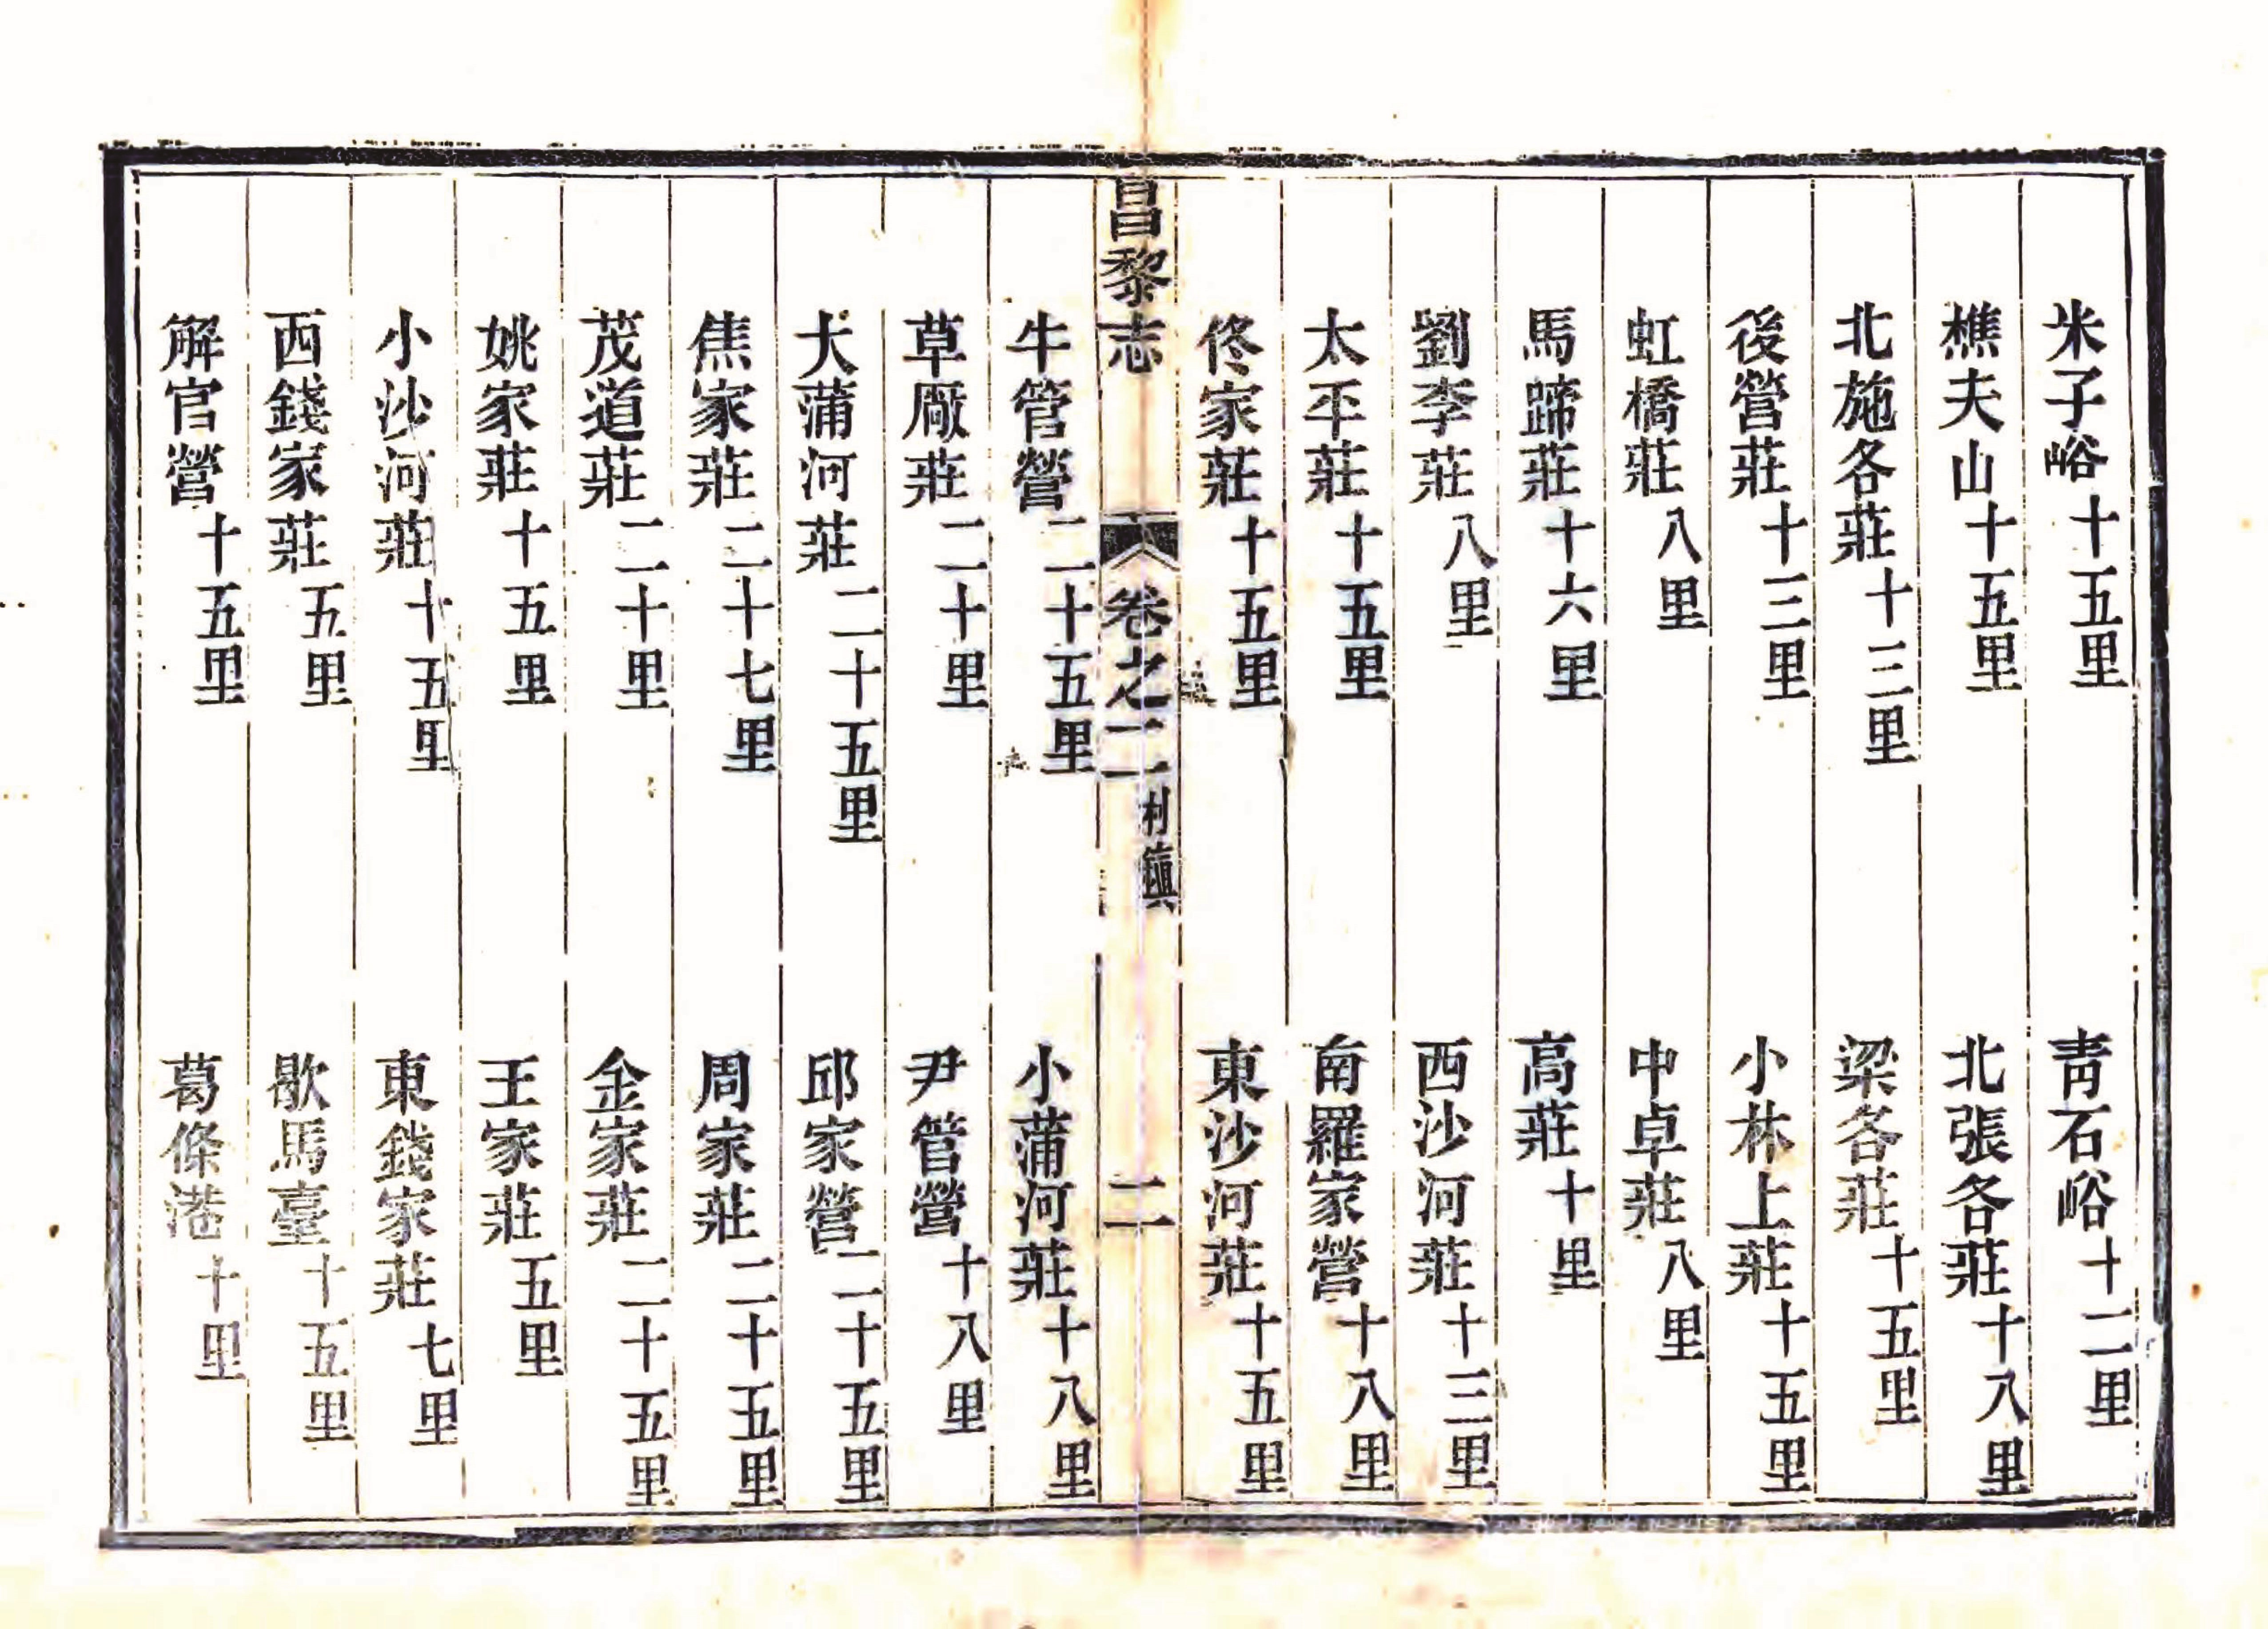 米子峪十五里　青石峪十二里
樵夫山十五里　北張各莊十八里
北施各莊十三里　梁各莊十五里
後營莊十三里　小林上莊十五里
虹橋莊八里　中卓莊八里
馬蹄莊十六里　高莊十里
劉李莊八里　西沙河莊十三里
太平莊十五里　南羅家營十八里
佟家莊十五里　東沙河莊十五里
昌黎志　卷之二　村鎮　二
牛管營二十五里　小蒲河莊十八里
草厰莊二十里　尹管營十八里
大蒲河莊二十五里　邱家營二十五里
焦家莊二十七里　周家莊二十五里
茂道莊二十里　金家莊二十五里
姚家莊十五里　王家莊五里
小沙河莊十五里　東錢家莊七里
西錢家莊五里　歇馬臺十五里
解官營十五里　葛條港十里